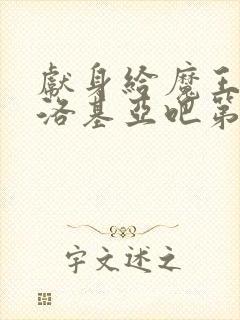 獻身給魔王
洛基亞吧第
宇文述之